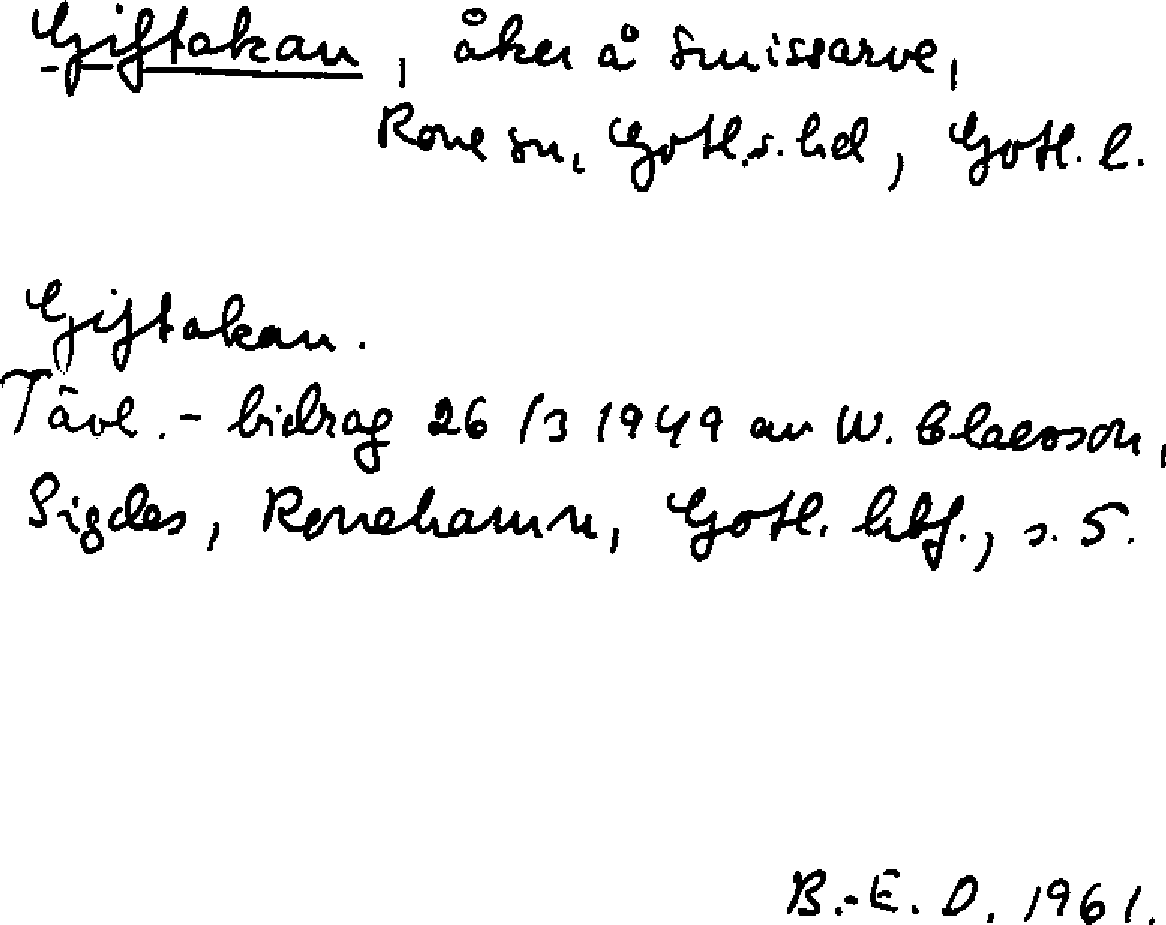 Giftakan, åker å Smissarve,
Rone sn, Gotl.s. hd, Gotl. l.
Giftakan.
Tävl.- bidrag 26/3 1949 av W. Claesson,
Sigdes, Ronehamn, Gotl. hbf., s. 5.
B.-E. O. 1961.